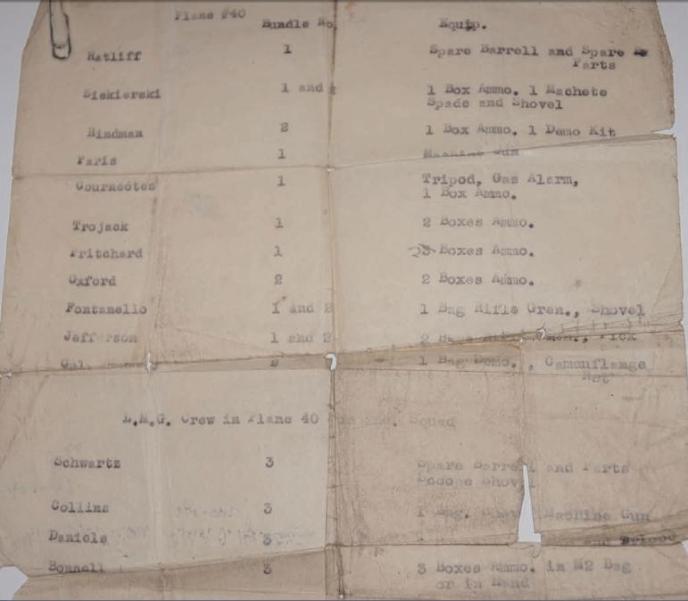 Plane #40
Bundle No. Equip.
Ratliff 1 Spare Barrell and Spare
Parts
Siekierski 1 and 1 Box Ammo. 1 Machete
Spade and Shovel
Hindman 2 1 Box Ammo. 1 Demo Kit
Paris 1 Machine Gun
Gournootes 1 Tripod, Gas Alarm,
1 Box Ammo.
Trojack 1 2 Boxes Ammo.
Pritchard 1 Boxes Ammo.
Oxford 2 2 Boxes Ammo.
Fontanello 1 and 2 1 Bag Rifle Gren., Shovel
Jefferson 1 and 2 2
1 Bag Demo., Camouflange
Net
L.M.G. Crew in Plane 40 Squad
Schwartz 3 Spare Barrel and Parts
Shovel
Collins 3 1 Machine Gun
Daniels 3 and
Bonnell 3 3 Boxes Ammo. in M2 Bag
or in Hand